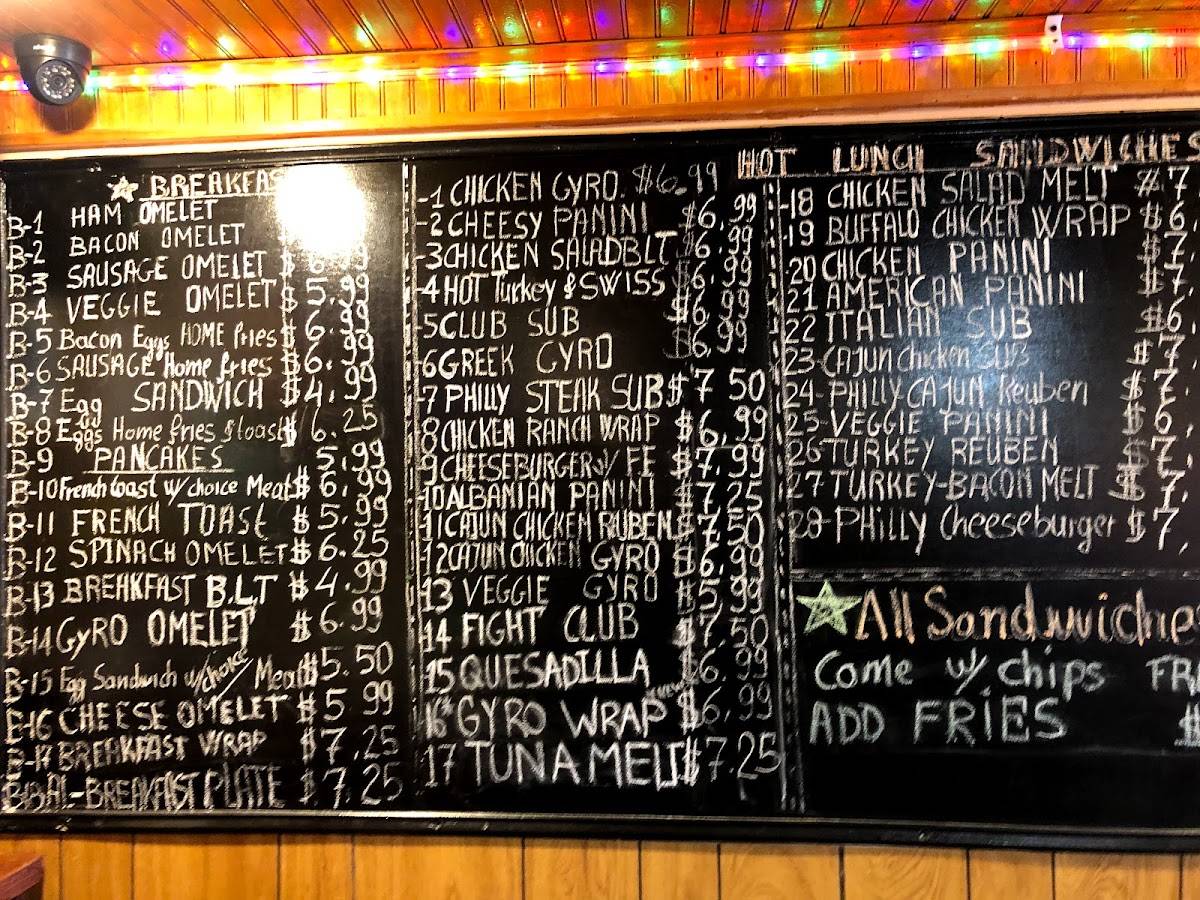 BREAKFAS
B-1 HAM OMELET
B-2 BACON OMELET
B-3 SAUSAGE OMELET $ 6.99
B-4 VEGGIE OMELET $ 5.99
B-5 Bacon Eggs HOME fries $ 6.99
B-6 SAUSAGE Home fries $ 6.99
B-7 Egg SANDWICH $ 4.99
B-8 Eggs Home fries & toast $ 6.25
B-9 PANCAKES 5.99
B-10 French toast w/ choice Meat $ 6.99
B-11 FRENCH TOAST $ 5.99
B-12 SPINACH OMELET $ 6.25
B-13 BREAKFAST B.L.T $ 4.99
B-14 GYRO OMELET $ 6.99
B-15 Egg Sandwich w/ choice Meat $ 5.50
B-16 CHEESE OMELET $ 5.99
B-17 BREAKFAST WRAP $ 7.25
B-18 AL-BREAKFAST PLATE $ 7.25
-1 CHICKEN GYRO. $6.99
-2 CHEESY PANINI $6.99
-3 CHICKEN SALAD BLT $6.99
-4 HOT Turkey & SWISS $6.99
5 CLUB SUB $6.99
6 GREEK GYRO $6.99
-7 PHILLY STEAK SUB $ 7 50
8 CHICKEN RANCH WRAP $6.99
9 CHEESEBURGER W/ FF $7.99
10 ALBANIAN PANINI $7.25
11 CAJUN CHICKEN RUBEN $7.50
12 CAJUN CHICKEN GYRO $6.99
13 VEGGIE GYRO $5.99
14 FIGHT CLUB $7.50
15 QUESADILLA $6.99
16 GYRO WRAP NEW $6.99
17 TUNA MELT $7.25
HOT LUNCH SANDWICHES
-18 CHICKEN SALAD MELT $7
-19 BUFFALO CHICKEN WRAP $6
-20 CHICKEN PANINI $7.
21 AMERICAN PANINI $7.
22 ITALIAN SUB $6.
23 CAJUN Chicken SUB $7.
24- PHILLY CAJUN Reuben $7.
25- VEGGIE PANINI $6.
26 TURKEY REUBEN $7.
27 TURKEY-BACON MELT $7.
28- PHILLY Cheeseburger $7.
All Sandwiche
Come w/ chips FR
ADD FRIES $